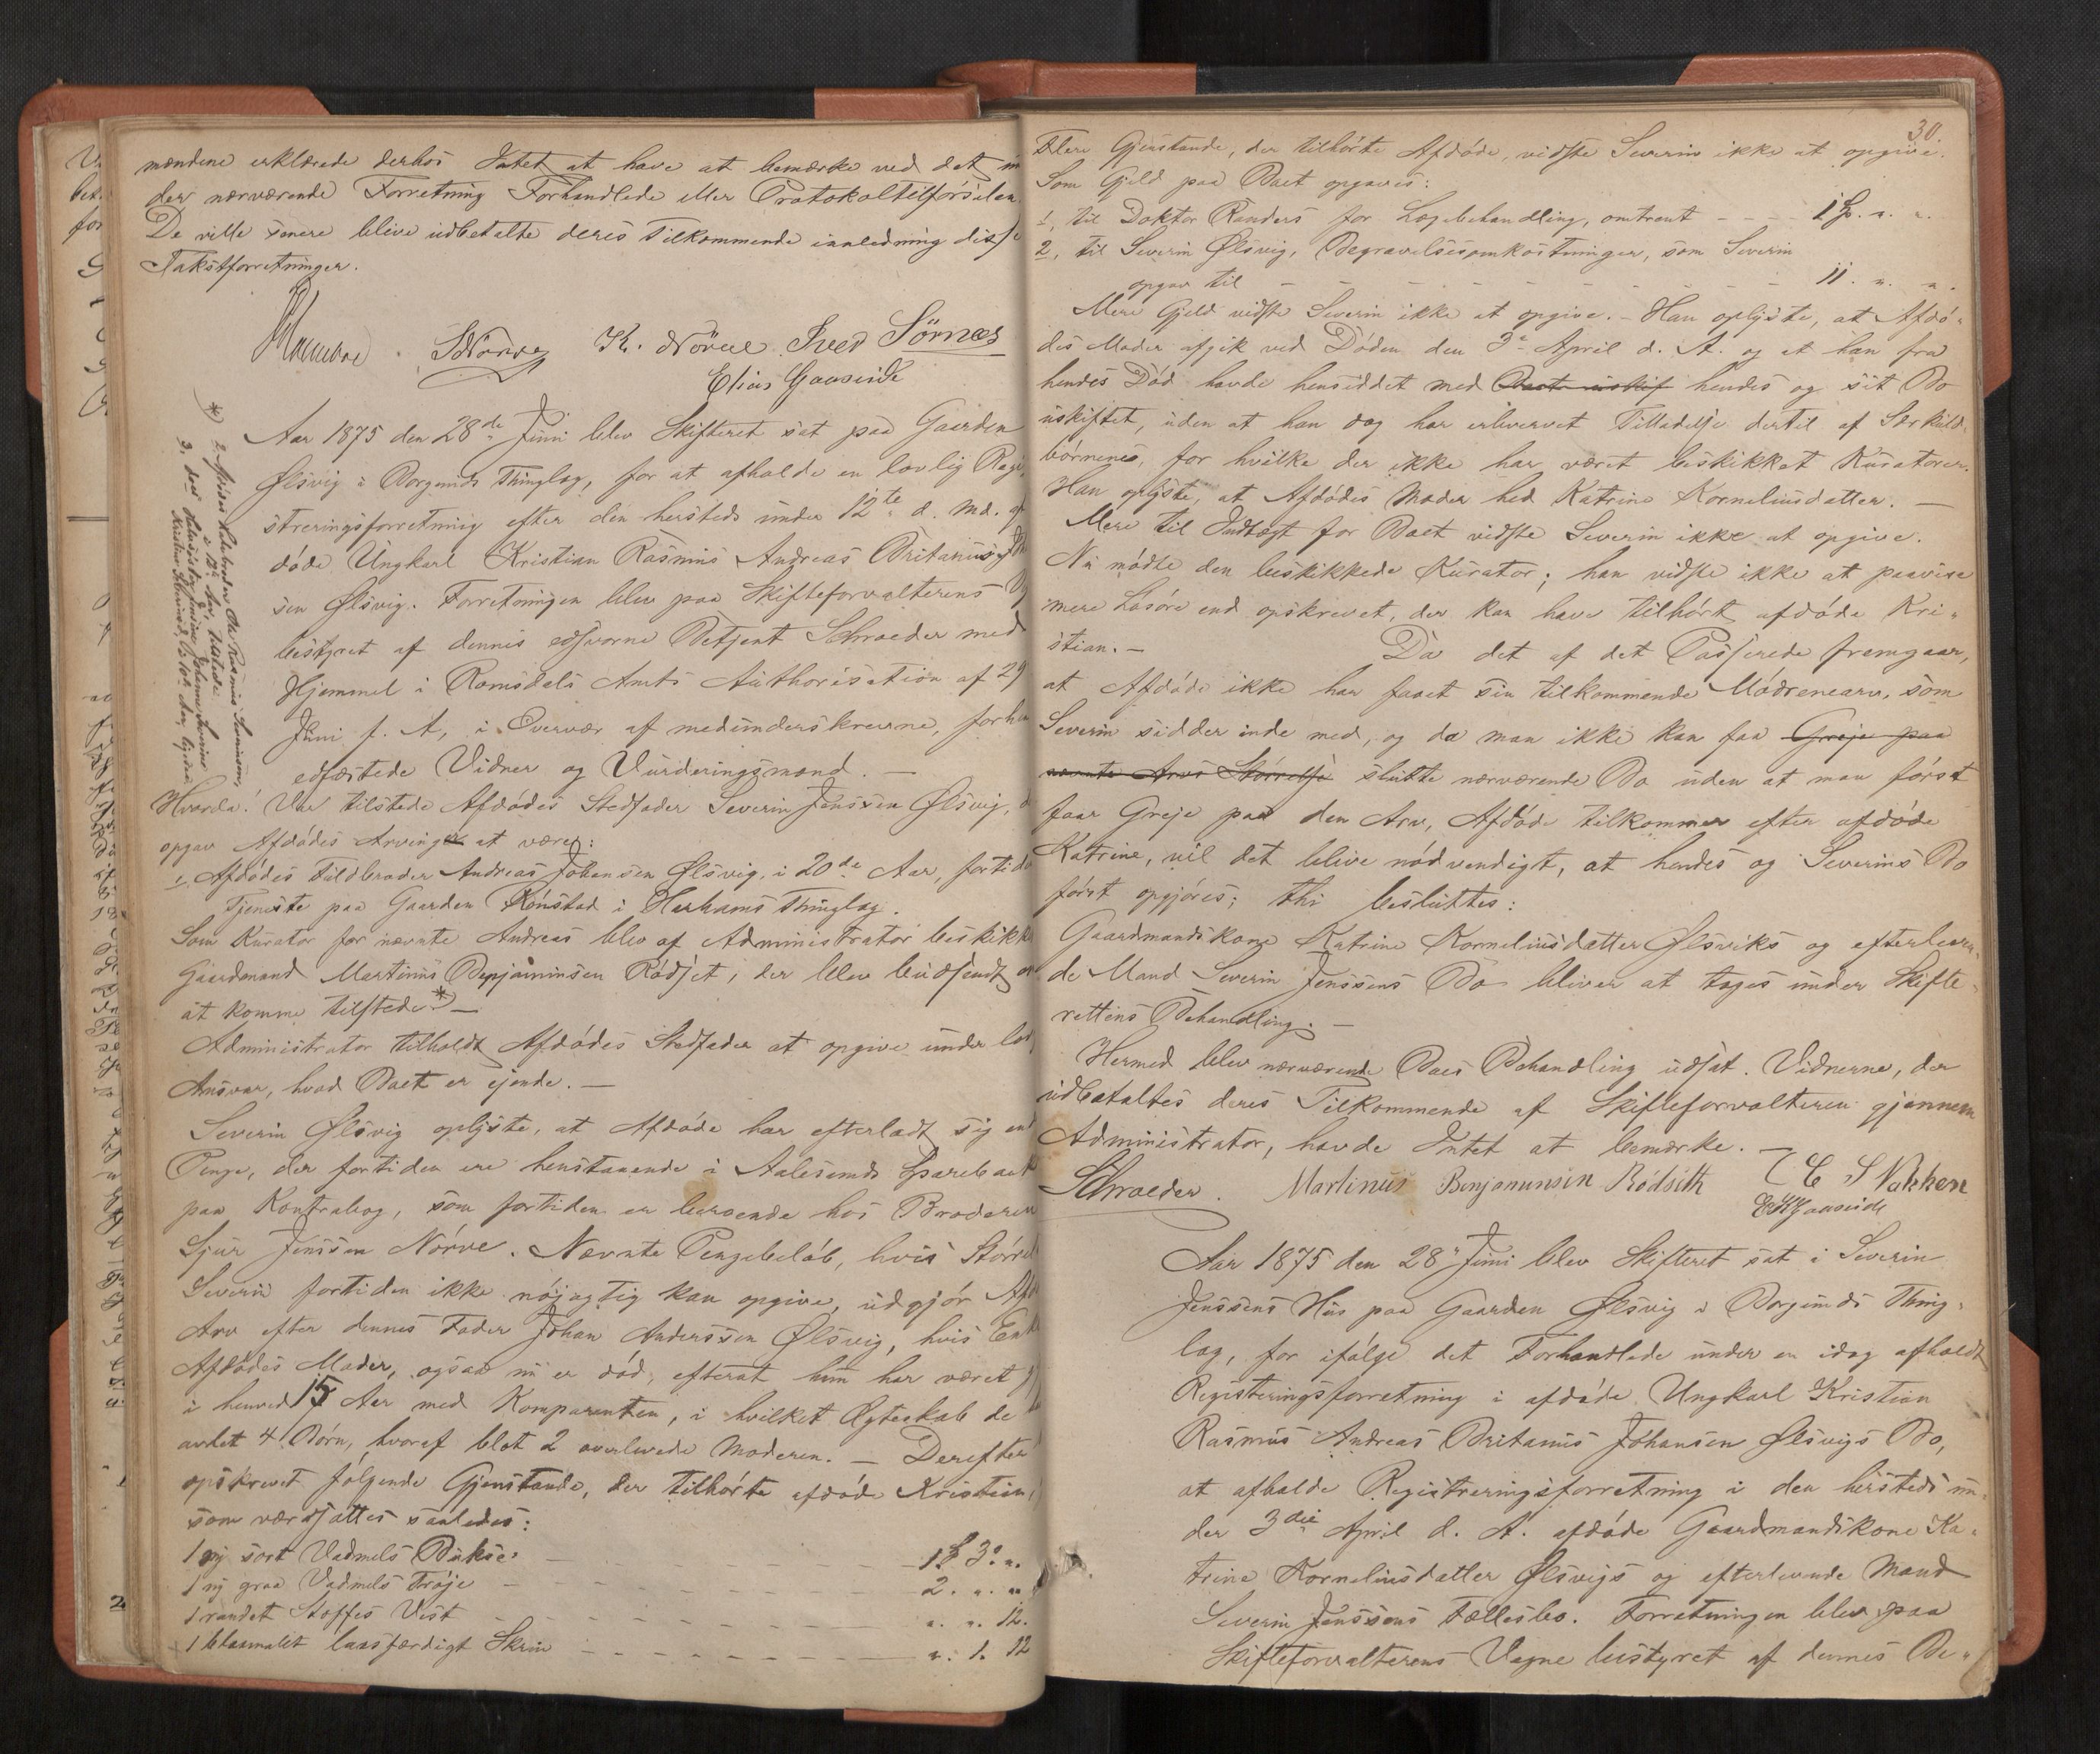 mændene erklærede derhos Intet at have at bemærke ved det
der nærværende Forretning Forhandlede eller Protokoltilførselen.
De ville senere blive udbetalte deres Tilkommende i anledning disse
Takstforretninger.
K. Nörve Iver Sörnes
Elias Gaaseide
Aar 1875 den 28de Juni blev Skifteret sat paa Gaarden
Ølsvig i Borgunds Thinglag, for at afholde en lovlig Regi
streringsforretning efter den hersteds under 12te d. Md. af
döde Ungkarl Kristian Rasmus Andreas Britanus Johan
sen Ølsvig. Forretningen blev paa Skifteforvalterens
bestyret af dennes edsvorne Betjent Schroeder med
Hjemmel i Romsdals Amts Authorisation af 29
Juni f. A, i Overvær af medunderskrevne, forhen
edfæstede Vidner og Vurderingsmænd. —
Hvorda! Var tilstede Afdödes Stedfader Severin Jenssen Ølsvig,
opgav Afdödes Arvinger at være:
1, Afdödes Fuldbroder Andreas Johansen Ølsvig, i 20de Aar, fortiden
Tjeneste paa Gaarden Rönstad i Harhams Thinglag.
Som Kurator for nævnte Andreas blev af Administrator beskikket
Gaardmand Martinus Benjaminsen Rödset, der blev budsendt
at komme tilstede *) —
*) 2, Afdödes Halvbroder Ole Rasmus Severinsen,
i 12te Aar, tilstede.
3, does Halvsøster Jensine Johanne Severins
Administrator tilholdt Afdödes Stedfader at opgive under
Ansvar, hvad Boet er ejende. —
Severin Ølsvig oplyste, at Afdöde har efterladt sig en
Penge, der fortiden ere henstaaende i Aalesunds Sparebank
paa Kontrabog, som fortiden er beroende hos Broderen
Sjur Jenssen Nörve. Nævnte Pengebelöb, hvis Större
Severin fortiden ikke nöjagtig kan opgive, udgjör Afd
Arv efter dennes Fader Johan Anderssen Ølsvig, hvis Enke
Afdödes Moder, ogsaa nu er död, efterat hun har været
i henved 15 Aar med Komparenten, i hvilket Ægteskab de
avlet 4 Börn, hvoraf blot 2 overlevede Moderen. — Derefter
opskrevet fölgende Gjenstande, der tilhörte afdöde Kristian,
som værdsattes saaledes:
1 ny sort Vadmels Bukse — 1 3 "
1 ny graa Vadmels Tröje — 2 . " . "
1 randet Stoffes Vest — " . " . 12.
1 blaamalet laasfærdigt Skrin — " . 1. 12
30.
Flere Gjenstande, der tilhörte Afdöde, vidste Severin ikke at opgive.
Som Gjeld paa Boet opgaves:
1, til Doktor Randers for Lægebehandling, omtrent — 1
2, til Severin Ølsvig, Begravelsesomkostninger, som Severin
opgav til — 11 . " . ".
Mere Gjeld vidste Severin ikke at opgive. — Han oplyste, at Afdö-
des Moder afgik ved Döden den 3de April d. A. og at han fra
hendes Död havde hensiddet med hendes og sit Bo
uskiftet, uden at han dog har erhvervet Tilladelse dertil af Særkuld-
börnene, for hvilke der ikke har været beskikket Kuratorer.
Han oplyste, at Afdödes Moder hed Katrine Korneliusdatter. —
Mere til Indtægt for Boet vidste Severin ikke at opgive.
Nu mödte den beskikkede Kurator; han vidste ikke at paavise
mere Lösöre end opskrevet, der kan have tilhört afdöde Kri-
stian. — Da det af det Passerede fremgaar,
at Afdöde ikke har faaet sin tilkommende Mödrenearv, som
Severin sidder inde med, og da man ikke kan faa Greje paa
nævnte Arvs Störrelse slutte nærværende Bo uden at man först
faar Greje paa den Arv, Afdöde tilkommer efter afdöde
Katrine, vil det blive nödvendigt, at hendes og Severins Bo
först opgjöres; thi besluttes:
Gaardmandskone Katrine Korneliusdatter Ølsviks og efterleven-
de Mand Severin Jenssens Bo bliver at tages under Skifte-
rettens Behandling. —
Hermed blev nærværende Boes Behandling udsat. Vidnerne, der
udbetaltes deres Tilkommende af Skifteforvalteren gjennem
Administrator, havde Intet at bemærke. —
Schroeder. Martinus Benjaminsin Rödsith E S Nakken
E Gaaseide
Aar 1875 den 28de Juni blev Skifteret sat i Severin
Jenssens Hus paa Gaarden Ølsvig i Borgunds Thing-
lag, for ifölge det Forhandlede under en idag afholdt
Registeringsforretning i afdöde Ungkarl Kristian
Rasmus Andreas Britanus Johansen Ølsvigs Bo,
at afholde Registreringsforretning i den hersteds un-
der 3die April d. A. afdöde Gaardmandskone Ka-
trine Korneliusdatter Ølsvigs og efterlevende Mand
Severin Jenssens Fællesbo. Forretningen blev paa
Skifteforvalterens Vegne bestyret af dennes Be-